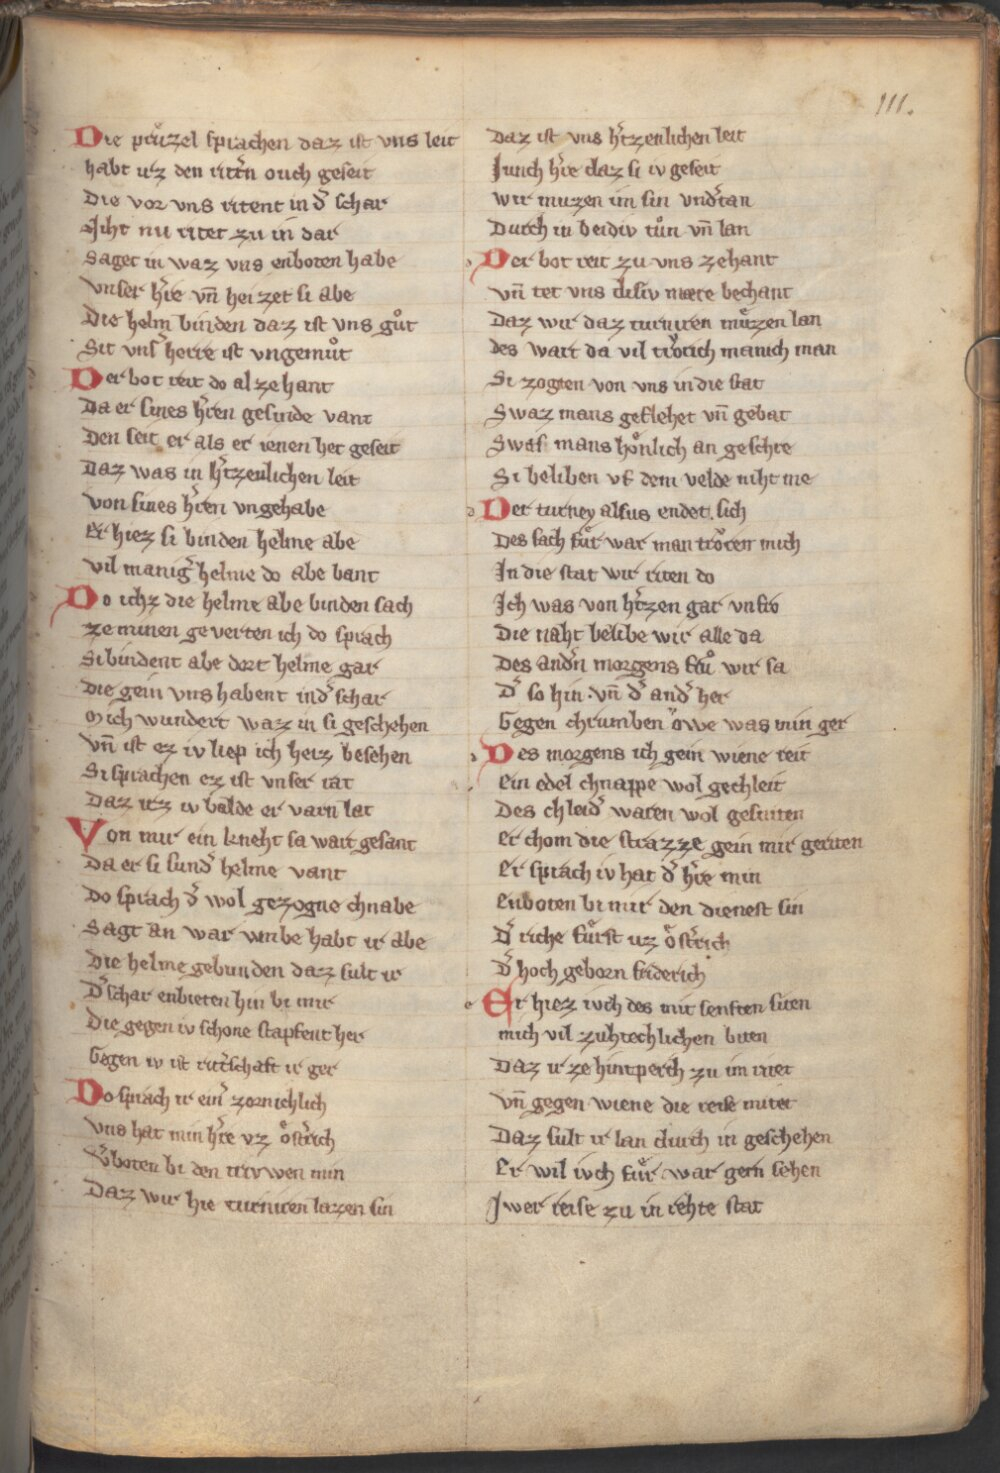 111.
Die průzel sprachen daz ist vns leit
habt irz den rittˀn ouch geseit
Die vor vns ritent in dˀ schar
Iht nu ritet zu in dar
Saget in waz vns enboten habe
Vnser hˀre vn̄ heizet si abe
Die helm binden daz ist vns gůt
Sit vnsˀ herre ist vngemůt
Der bot reit do al zehant
Da er sines hˀren gesinde vant
Den seit er als er ienen het geseit
Daz was in hˀtzenlichen leit
Von sines hˀren vngehabe
Er hiez si binden helme abe
Vil manigˀ helme do abe bant
Do ichz die helme abe binden sach
Ze minen geverten ich do sprach
Si bindent abe dort helme gar
Die gein vns habent in dˀ schar
Mich wundert waz in si geschehen
Vn̄ ist ez iv liep ich heiz besehen
Si sprachen ez ist vnser rat
Daz irz iv balde er varn lat
Von mir ein kneht sa wart gesant
Da er si sundˀ helme vant
Do sprach dˀ wol gezogne chnabe
Sagt an war vmbe habt ir abe
Die helme gebunden daz sult ir
Dˀ schar enbieten hin bi mir
Die gegen iv schone stapfent her
Gegen iv ist rittˀschaft ir ger
Do sprach ir einˀ zornichlich
Vns hat min hˀre vz oͤstˀrich
Enboten bi den triwen min
Daz wir hie turniren lazen sin
Daz ist vns hˀtzenlichen leit
Iunch hˀre daz si iv geseit
Wir muzen im sin vndˀtan
Durch in beidiv tůn vn̄ lan
Der bot reit zu vns zehant
Vn̄ tet vns disiv mære bechant
Daz wir daz turniren můzen lan
Des wart da vil trorich manich man
Si zogten von vns in die stat
Swaz mans geflehet vn̄ gebat
Swaf mans hoͤnlich an geschre
Si beliben vf dem velde niht me
Der turney alsus endet sich
Des sach fůr war man troren mich
In die stat wir riten do
Ich was von hˀtzen gar vnfro
Die naht belibe wir alle da
Des andˀn morgens fůr wir sa
Dˀ so hin vn̄ dˀ andˀ her
Gegen chrumben owe was min ger
Des morgens ich gein wiene reit
Ein edel chnappe wol gechleit
Des chleidˀ waren wol gesniten
Er chom die strazze gein mir geriten
Er sprach iv hat dˀ hˀre min
Enboten bi mir den dienest sin
Dˀ riche fůrst uz oͤstˀrich
Dˀ hoch geborn friderich
Er hiez ivch des mit senften siten
Mich vil zuhtechlichen biten
Daz ir ze hintperch zu im ritet
Vn̄ gegen wiene die reise mitet
Daz sult ir lan durch in geschehen
Er wil ivch fůr war gern sehen
Iwer reise zu in rehte stat